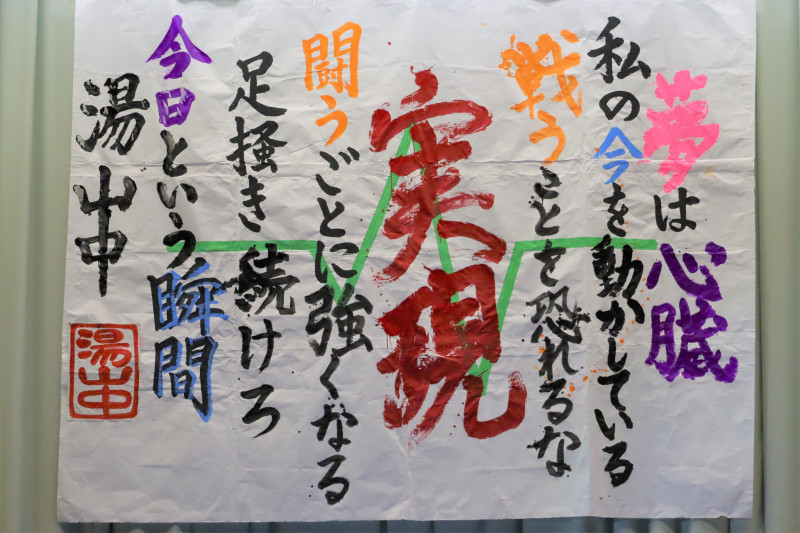 夢は心臓
私の今を動かしている
戦うことを恐れるな
実現
闘うごとに強くなる
足掻き続けろ
今日という瞬間
湯山中
湯山中